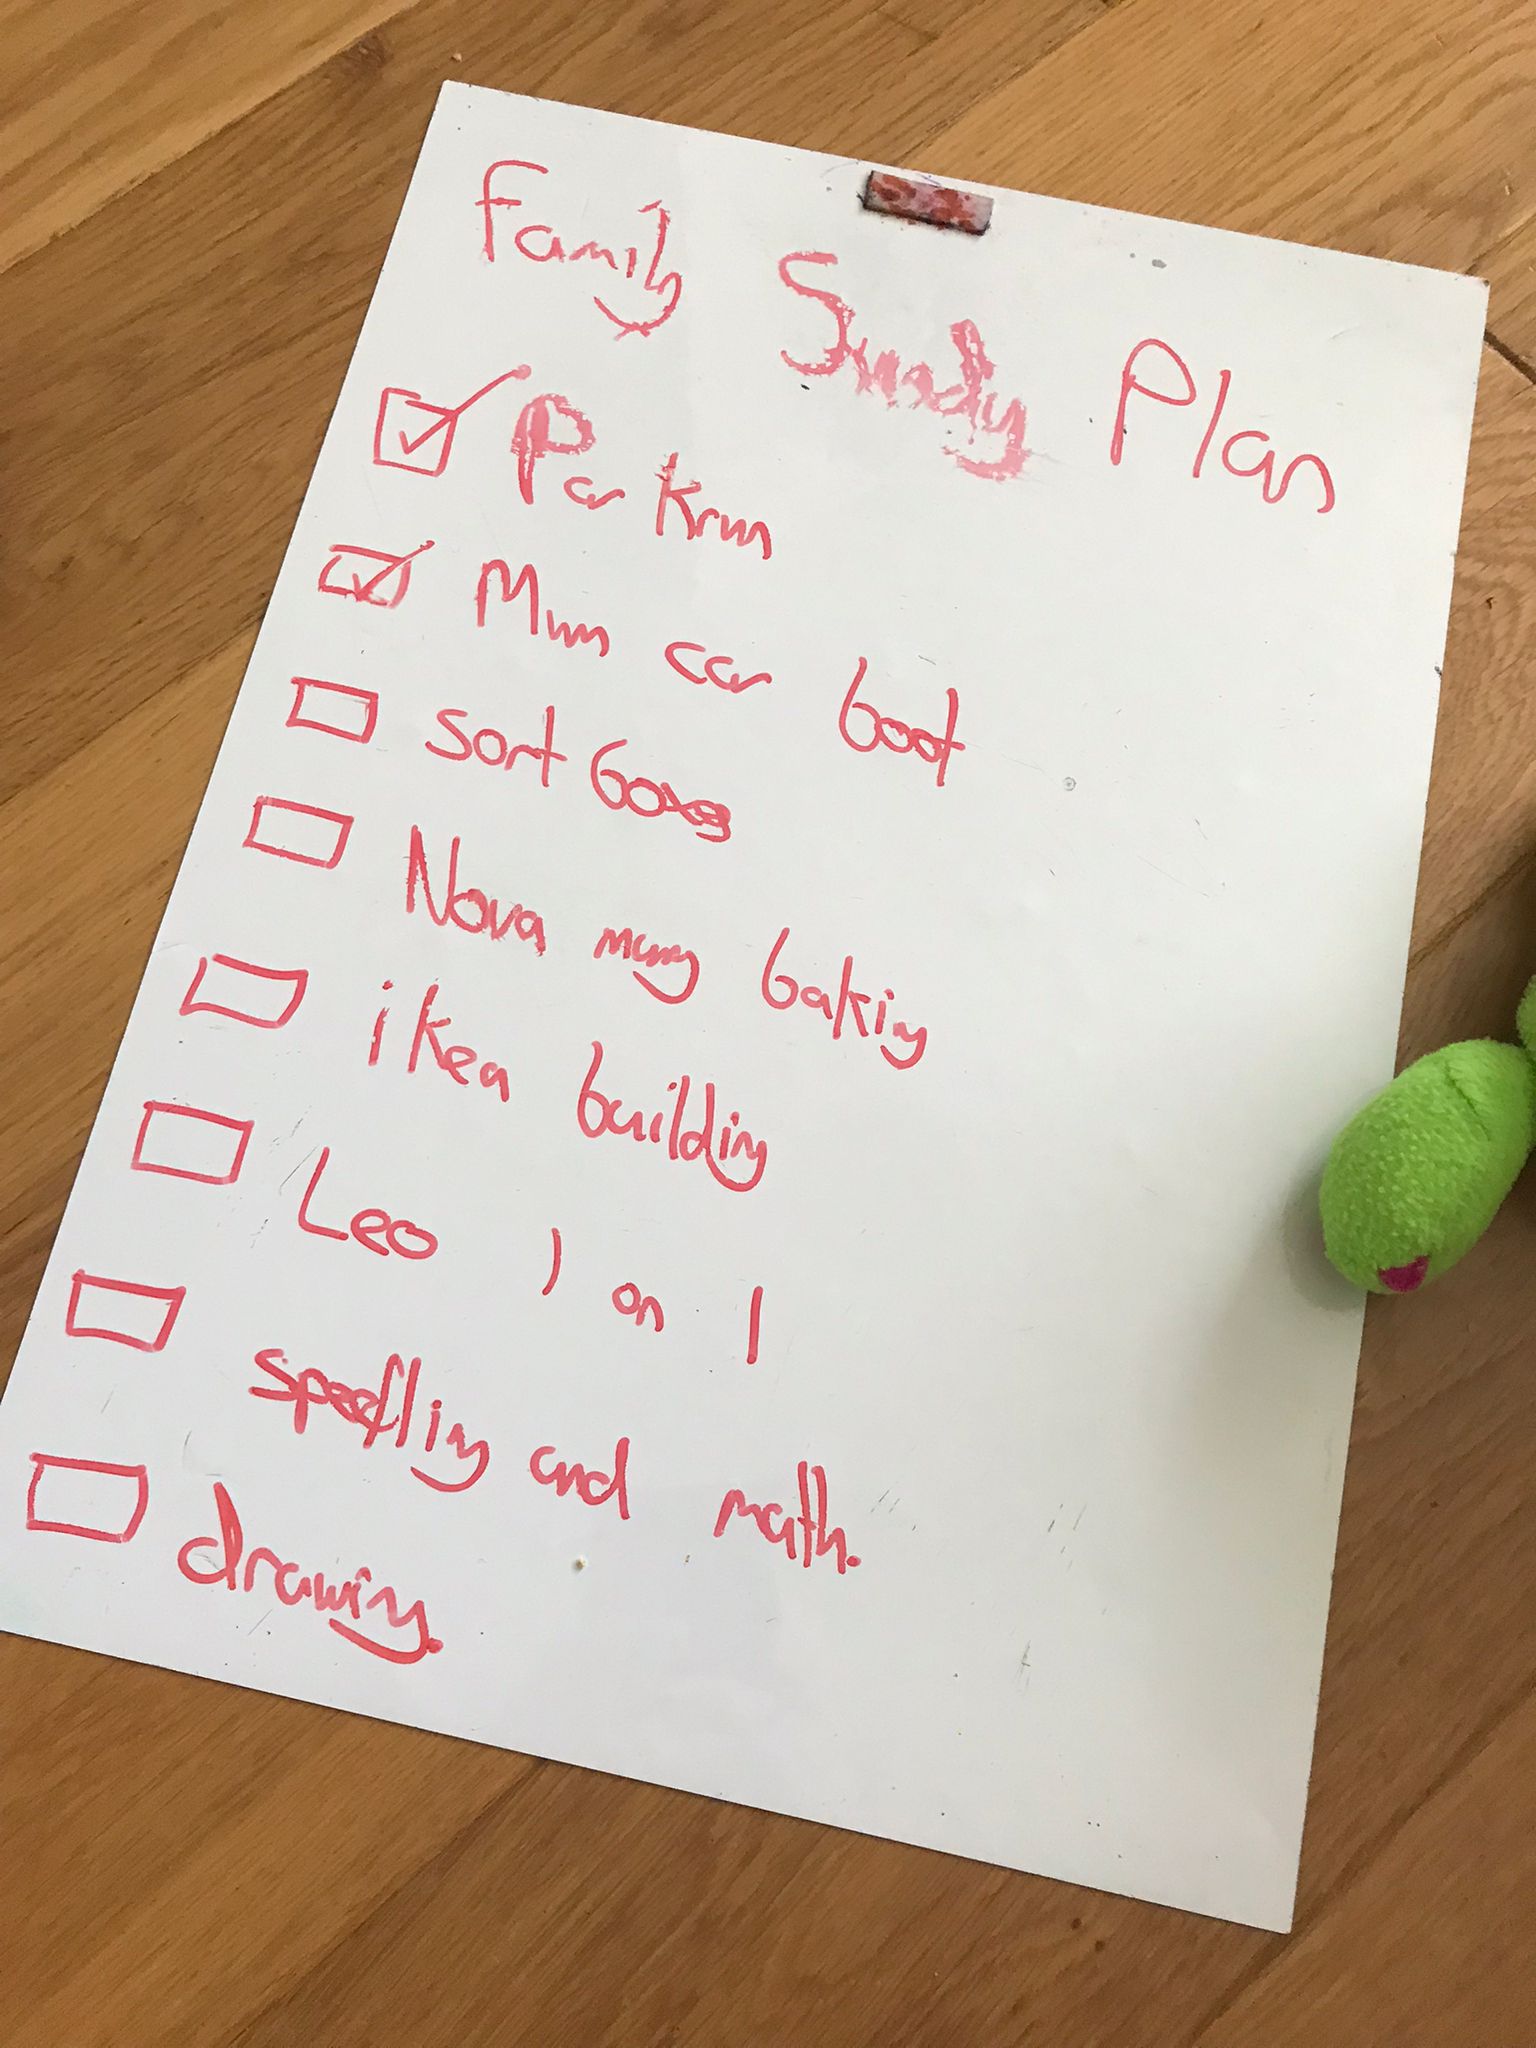 Family Sunday Plan
Parkrun
Mum car boot
Sort boxes
Nova mumy baking
ikea building
Leo 1 on 1
spelling and math.
drawing.